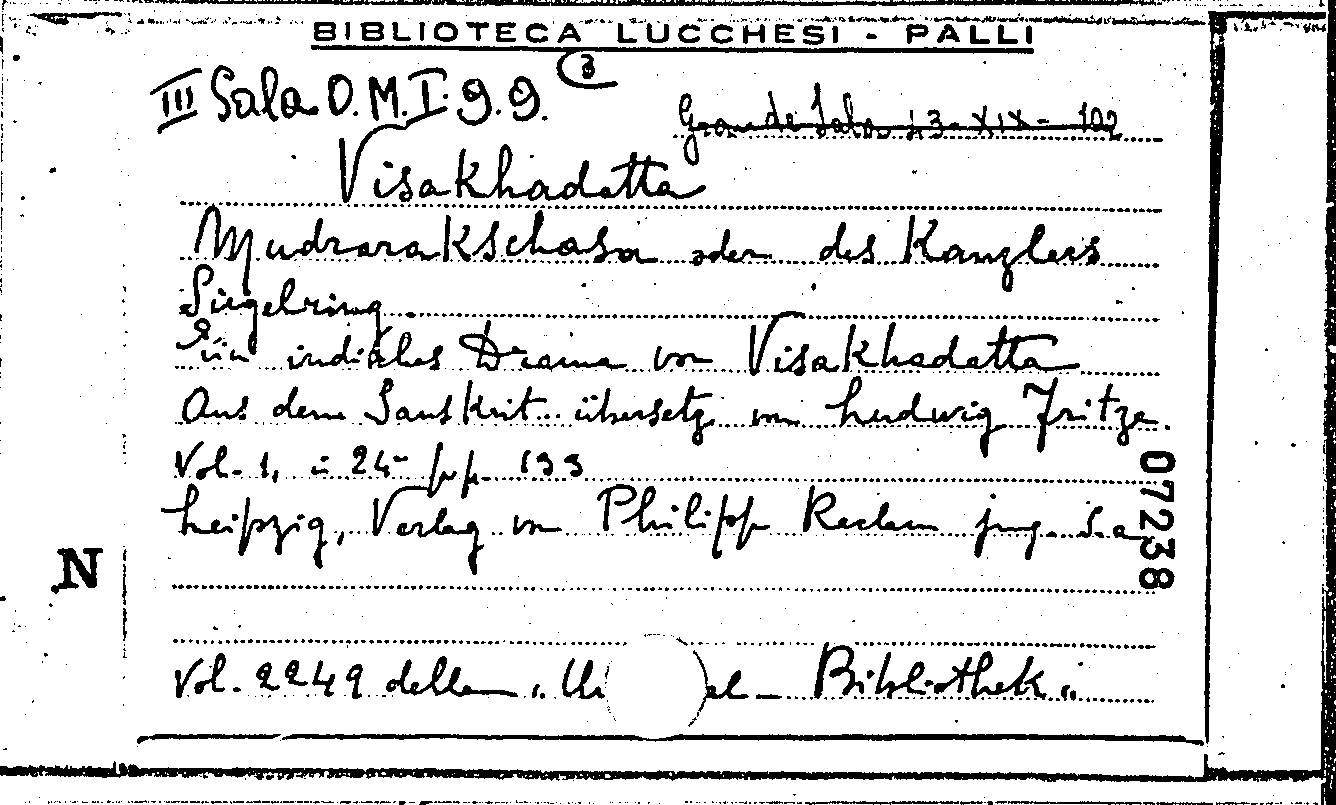 BIBLIOTECA LUCCHESI - PALLI
III Sala O.M.I.9.9. (3)
Grande Sala 23-XIX-102
Visakhadatta
Mudrarakschasa oder des Kanzlers
Siegelring.
Ein indisches Drama von Visakhadatta
Aus dem Sanskrit übersetz von Ludwig Fritze.
Vol. 1, in 24° pp. 133
Leipzig, Verlag von Philipp Reclam jung. s.a
07238
N
Vol. 2249 della "U el - Bibliothek"